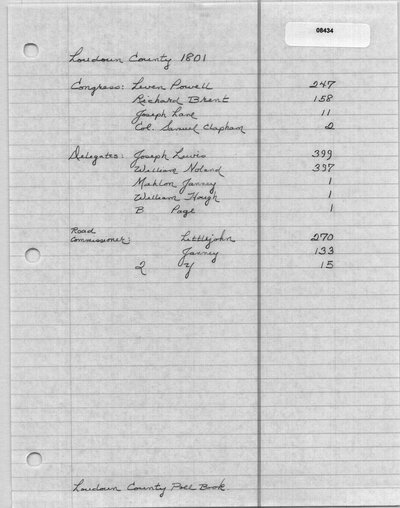 08434
Loudoun County 1801
Congress: Leven Powell 247
Richard Brent 158
Joseph Lane 11
Col. Samuel Clapham 2
Delegates: Joseph Lewis 399
William Noland 397
Mahlon Janney 1
William Hough 1
B Page 1
Road
Commissioner: Littlejohn 270
Janney 133
2 Y 15
Loudoun County Poll Book.